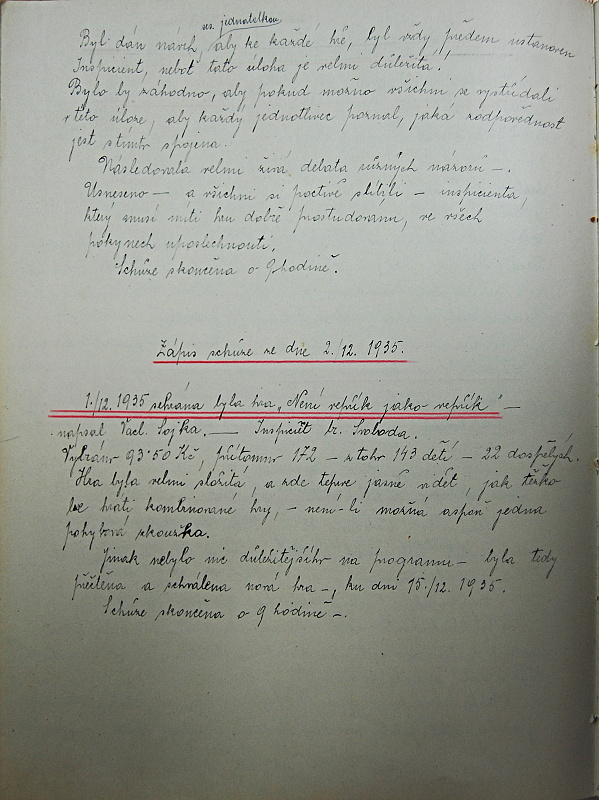 ses. jednatelkou
Byl dán návrh, aby ke každé hře, byl vždy předem ustanoven
Inspicient, neboť tato úloha je velmi důležitá.
Bylo by záhodno, aby pokud možno všichni se vystřídali
v této úloze, aby každý jednotlivec poznal, jaká zodpovědnost
jest s tímto spojena.
Následovala velmi živá debata různých názorů –.
Usneseno – a všichni si poctivě slíbili – inspicienta,
který musí míti hru dobře prostudovanu, ve všech
pokynech uposlechnouti.
Schůze skončena o 9 hodině.
Zápis schůze ze dne 2./12. 1935.
1./12. 1935 sehrána byla hra „Není vepřík jako vepřík" –
napsal Václ. Sojka. — Inspicít br. Svoboda.
Vybráno 93·50 Kč, přítomno 172 – z toho 143 dětí – 22 dospělých.
Hra byla velmi složitá, a zde teprve jasně vidět, jak těžko
lze hráti kombinované hry, – není-li možná aspoň jedna
pohybová zkouška.
Jinak nebylo nic důležitějšího na programu – byla tedy
přečtena a schválena nová hra –, ku dni 15./12. 1935.
Schůze skončena o 9 hodině –.